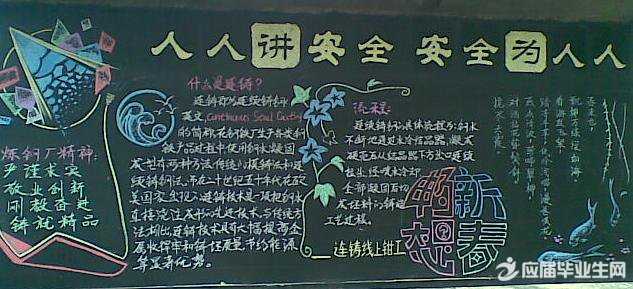 人人讲安全 安全为人人
炼钢厂精神:
严谨求实
敬业创新
刚毅奋进
铸就精品
什么是连铸?
连铸即为连续铸钢
英文,Continuous Steel Casting
的简称在钢铁厂生产各类钢
铁产品过程中,使用钢水凝固
成型有两种方法:传统的模铸法和连
续铸钢法,而在二十世纪五十年代在欧
美国家出现的连铸技术是一项把钢水
直接浇注成形的先进技术,与传统方法
相比连铸技术具有大幅提高金
属收得率和铸坯质量节约能源
等显著优势。
流程:
连续铸钢的具体流程为:钢水
不断地通过水冷结晶器,凝成
硬壳后从结晶器下方出口连续
拉出,经喷水冷却
全部凝固后切
成坯料的铸造
工艺过程。
——连铸线上钳工
新春的
想
应届毕业生网